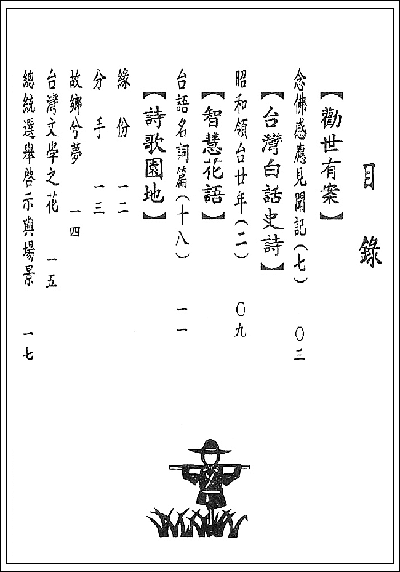 目錄
【勸世有案】
念佛感應見聞記(七) 〇二
【台灣白話史詩】
昭和領台廿年(二) 〇九
【智慧花語】
台語名詞篇(十八) 一一
【詩歌園地】
緣份 一二
分手 一三
故鄉兮夢 一四
台灣文學之花 一五
總統選舉啓示與場景 一七